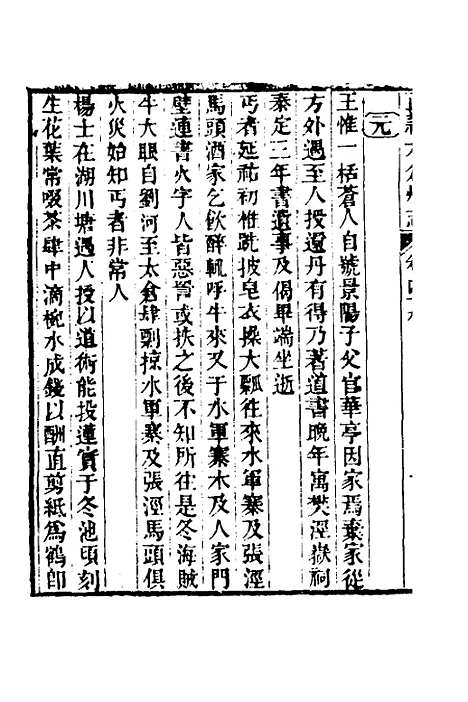 元
王惟一括蒼人自號景陽子父官華亭因家焉棄家從
方外遇至人授還丹有得乃著道書晚年寓樊涇嶽祠
泰定三年書遺事及偈畢端坐逝
丐者延祐初椎跣披皂衣操大瓢往來水軍寨及張涇
馬頭酒家乞飲醉輒呼牛來又于水軍寨木及人家門
壁連書火字人皆惡詈或抶之後不知所往是冬海賊
牛大眼自劉河至太倉肆剽掠水軍寨及張涇馬頭俱
火災始知丐者非常人
楊士在湖川塘遇人授以道術能投蓮實于冬池頃刻
生花葉常啜茶肆中滴椀水成錢以酬直剪紙為鶴即